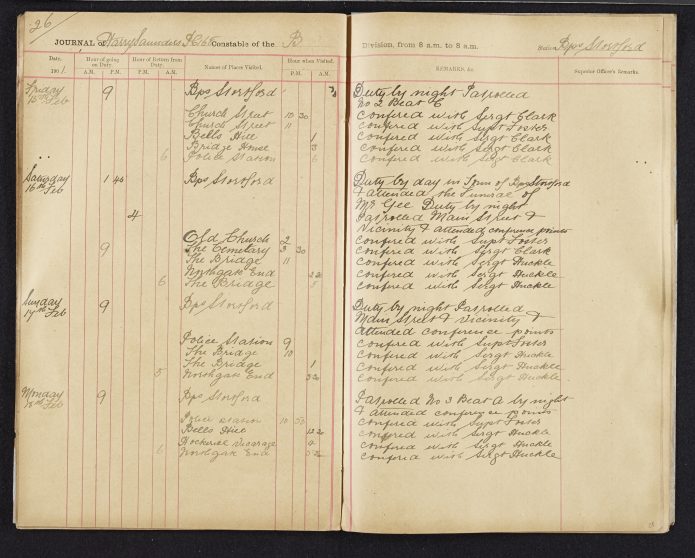 26
JOURNAL of Harry Saunders PC 168 Constable of the B Division, from 8 a.m. to 8 a.m. Station Bps Stortford
Date. Hour of going on Duty. Hour of Return from Duty. Names of Places Visited. Hour when Visited. REMARKS, &c. Superior Officer's Remarks.
1901. A.M. P.M. P.M. A.M. P.M. A.M.
Friday 9 Bps Stortford Duty by night Patrolled
15th Feb No 2 Beat C
Church Street 10 30 Confered with Sergt Clark
Church Street 11 Confered with Supt Foster
Bells Hill 1 Confered with Sergt Clark
Bridge House 3 Confered with Sergt Clark
6 Police Station 6 Confered with Sergt Clark
Saturday 1 45 Bps Stortford Duty by day in Town of Bps Stortford
16th Feb & attended the Funeral of
Mr Gee Duty by night
4 Patrolled Main Street &
Vicinity & attended conference points
Old Church 2 Confered with Supt Foster
9 The Cemetary 3 30 Confered with Sergt Clark
The Bridge 11 Confered with Sergt Huckle
Northgate End Confered with Sergt Huckle
6 The Bridge 5 Confered with Sergt Huckle
Sunday 9 Bps Stortford Duty by night Patrolled
17th Feb Main Street & Vicinity &
attended conference points
Police Station 9 Confered with Supt Foster
The Bridge 10 Confered with Sergt Huckle
The Bridge 1 Confered with Sergt Huckle
5 Northgate End Confered with Sergt Huckle
Monday 9 Bps Stortford Patrolled No 3 Beat A by night
18th Feb & attended conference points
Police Station 10 Confered with Supt Foster
Bells Hill Confered with Sergt Huckle
Hockerill Vicarage Confered with Sergt Huckle
6 Northgate End Confered with Sergt Huckle